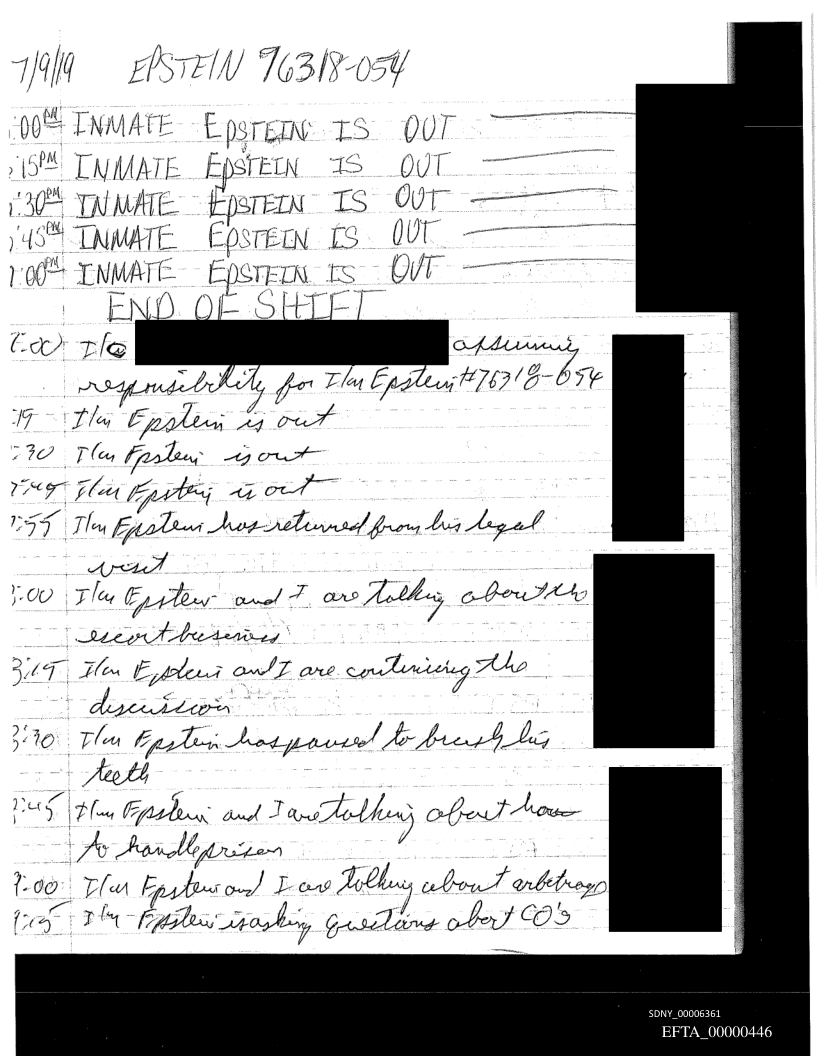 7/9/19 EPSTEIN 76318-054
:00PM INMATE EPSTEIN IS OUT
:15PM INMATE EPSTEIN IS OUT
:30PM INMATE EPSTEIN IS OUT
:45PM INMATE EPSTEIN IS OUT
:00PM INMATE EPSTEIN IS OUT
END OF SHIFT
:00 I/a assuming
responsibility for I/m Epstein #76318-054
:19 I/m Epstein is out
:30 I/m Epstein is out
I/m Epstein is out
:55 I/m Epstein has returned from his legal
visit
:00 I/m Epstein and I are talking about the
escort business
I/m Epstein and I are continuing the
discussion
:30 I/m Epstein has paused to brush his
teeth
:45 I/m Epstein and I are talking about how
to handle prison
:00 I/m Epstein and I are talking about arbetrage
:15 I/m Epstein is asking questions abert CO's
SDNY_00006361
EFTA_00000446